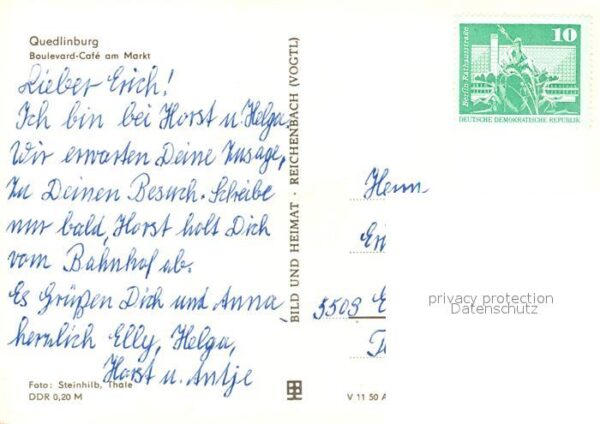 Quedlinburg
Boulevard-Café am Markt
Lieber Erich!
Ich bin bei Horst u. Helga,
Wir erwarten Deine Zusage,
Zu Deinen Besuch. Schreibe
nur bald, Horst holt Dich
vom Bahnhof ab.
Es Grüßen Dich und Anna,
herzlich Elly, Helga,
Horst u. Antje
Foto: Steinhilb, Thale
DDR 0,20 M
BILD UND HEIMAT · REICHENBACH (VOGTL)
V 11 50 A
10
Berlin Rathausstraße
DEUTSCHE DEMOKRATISCHE REPUBLIK
Herrn
Eri
5503 E
privacy protection
Datenschutz